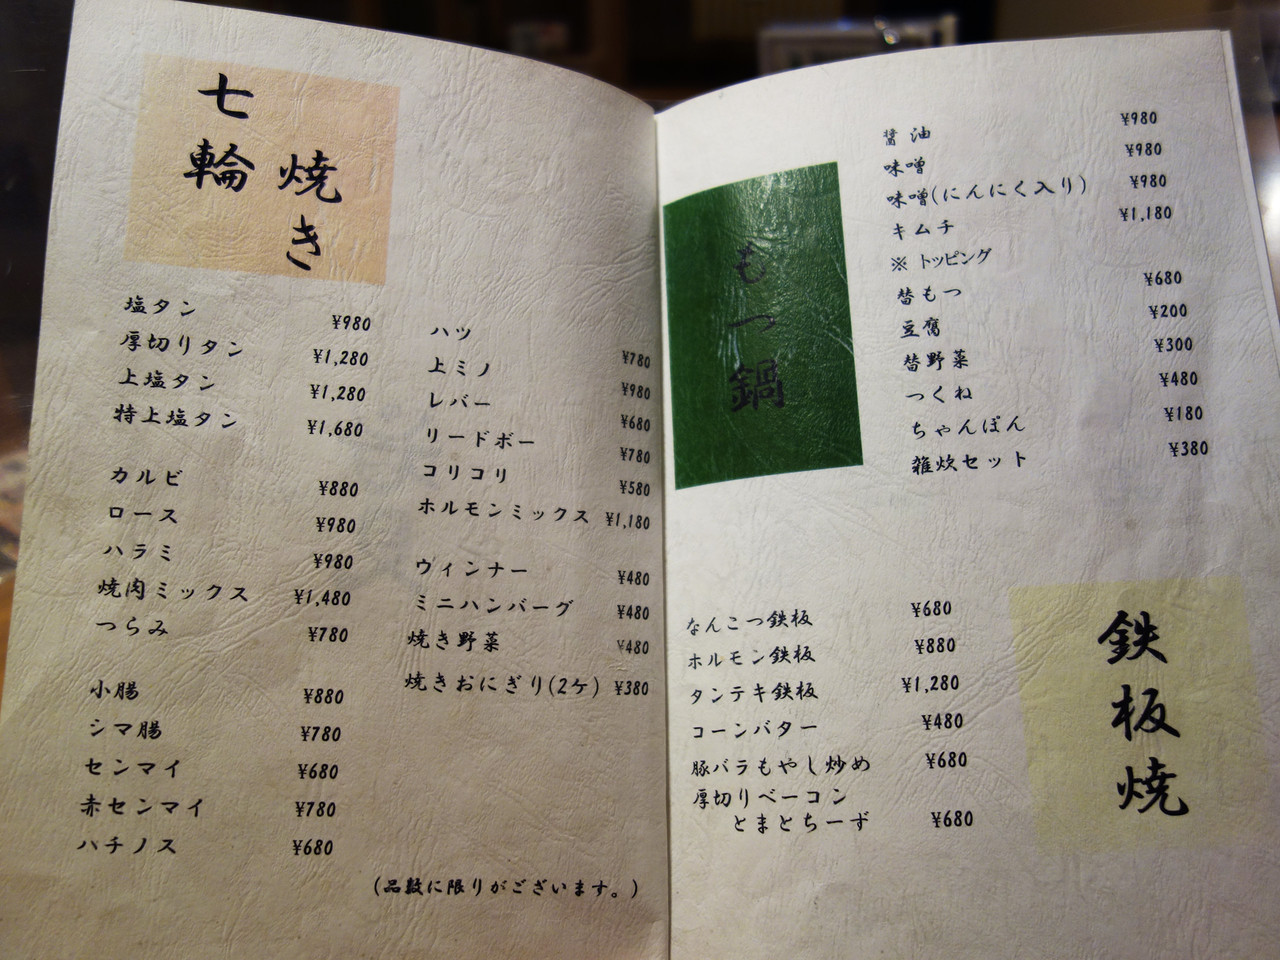 七輪
焼き
塩タン ¥980
厚切りタン ¥1,280
上塩タン ¥1,280
特上塩タン ¥1,680
カルビ ¥880
ロース ¥980
ハラミ ¥980
焼肉ミックス ¥1,480
つらみ ¥780
小腸 ¥880
シマ腸 ¥780
センマイ ¥680
赤センマイ ¥780
ハチノス ¥680
ハツ ¥780
上ミノ ¥980
レバー ¥680
リードボー ¥780
コリコリ ¥580
ホルモンミックス ¥1,180
ウィンナー ¥480
ミニハンバーグ ¥480
焼き野菜 ¥480
焼きおにぎり(2ケ) ¥380
(品数に限りがございます。)
もつ鍋
醤油 ¥980
味噌 ¥980
味噌(にんにく入り) ¥980
キムチ ¥1,180
※ トッピング
替もつ ¥680
豆腐 ¥200
替野菜 ¥300
つくね ¥480
ちゃんぽん ¥180
雑炊セット ¥380
鉄板焼
なんこつ鉄板 ¥680
ホルモン鉄板 ¥880
タンテキ鉄板 ¥1,280
コーンバター ¥480
豚バラもやし炒め ¥680
厚切りベーコン
とまとちーず ¥680